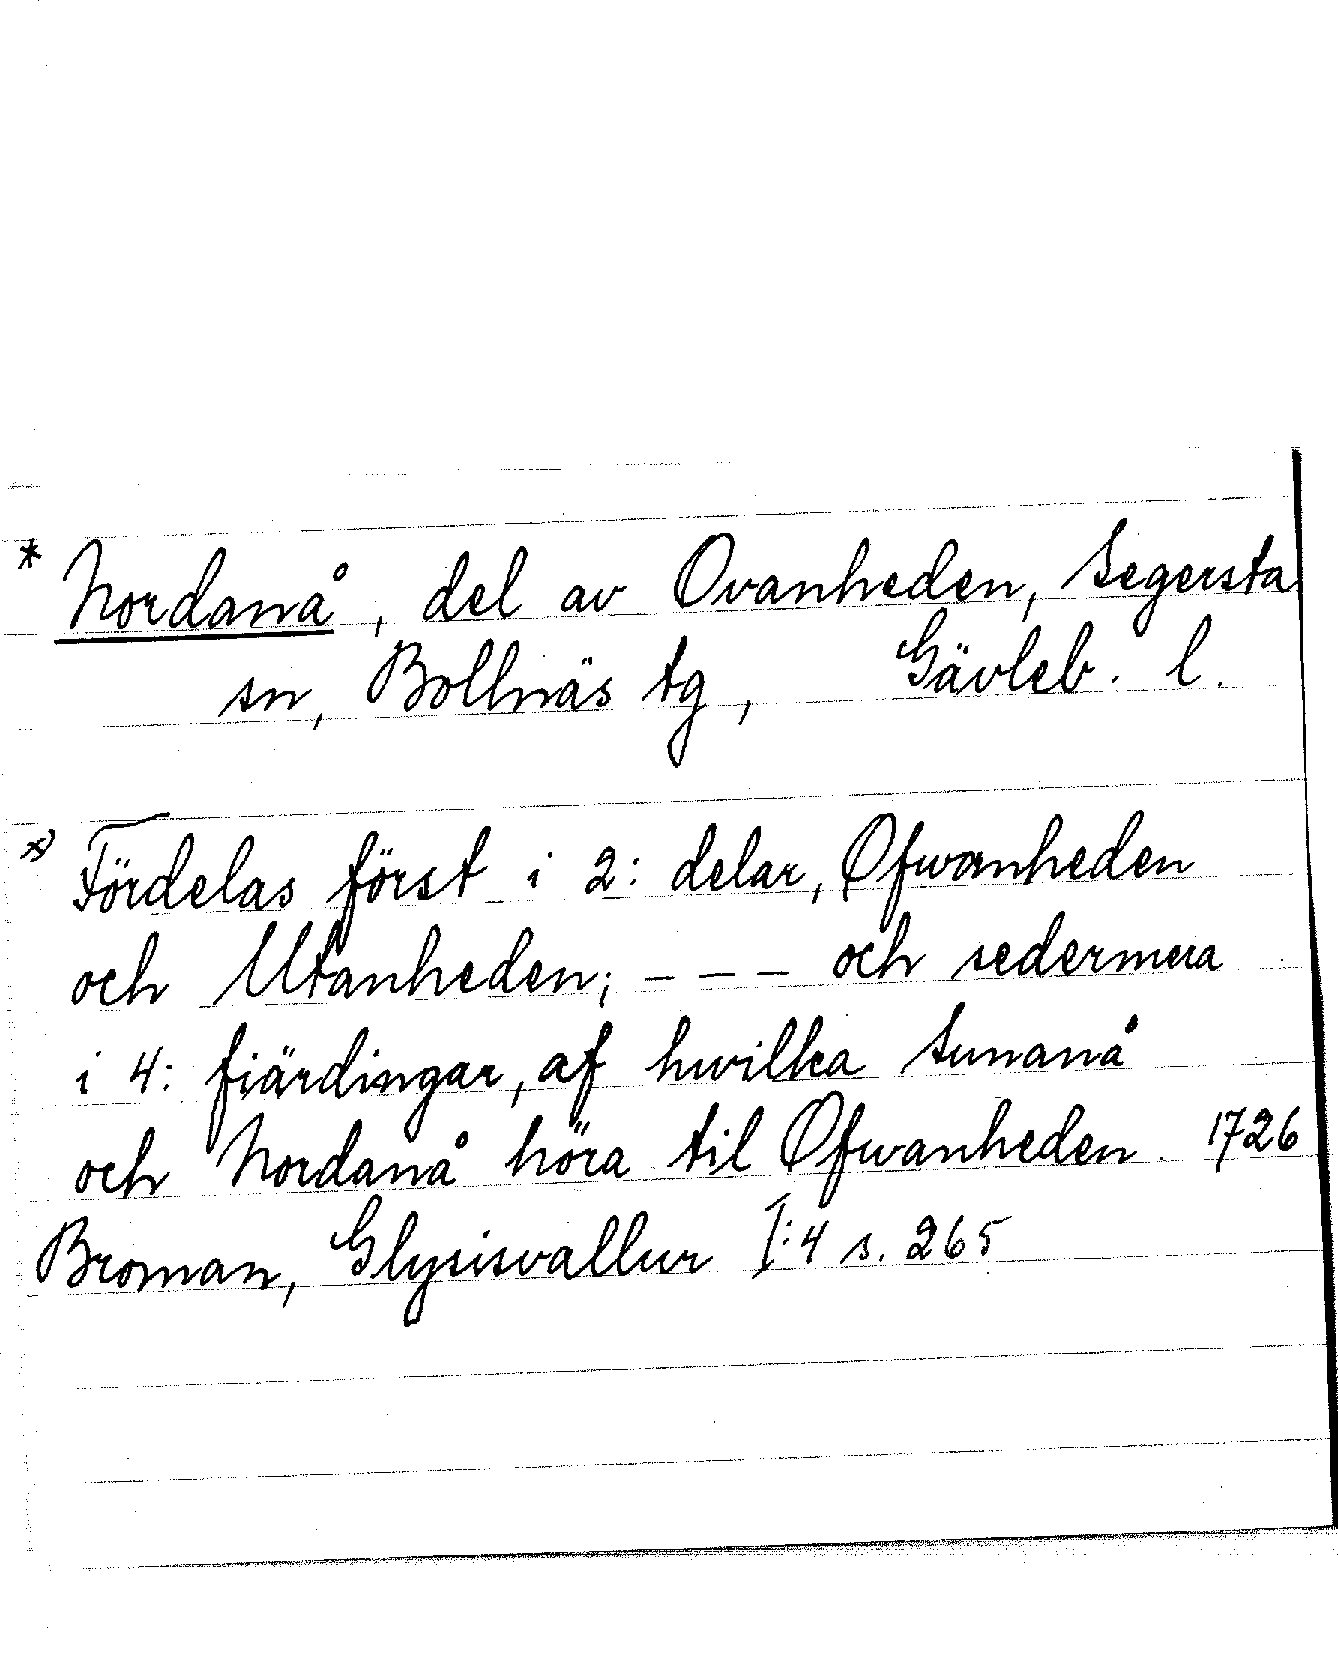 * Nordanå, del av Ovanheden, Segersta
sn, Bollnäs tg, Gävleb. l.
*) Fördelas först i 2: delar, Ofwanheden
och Utanheden; – – – och sedermera
i 4: fiärdingar, af hwilka Sunanå
och Nordanå höra til Ofwanheden. 1726
Broman, Glysisvallur I:4 s. 265